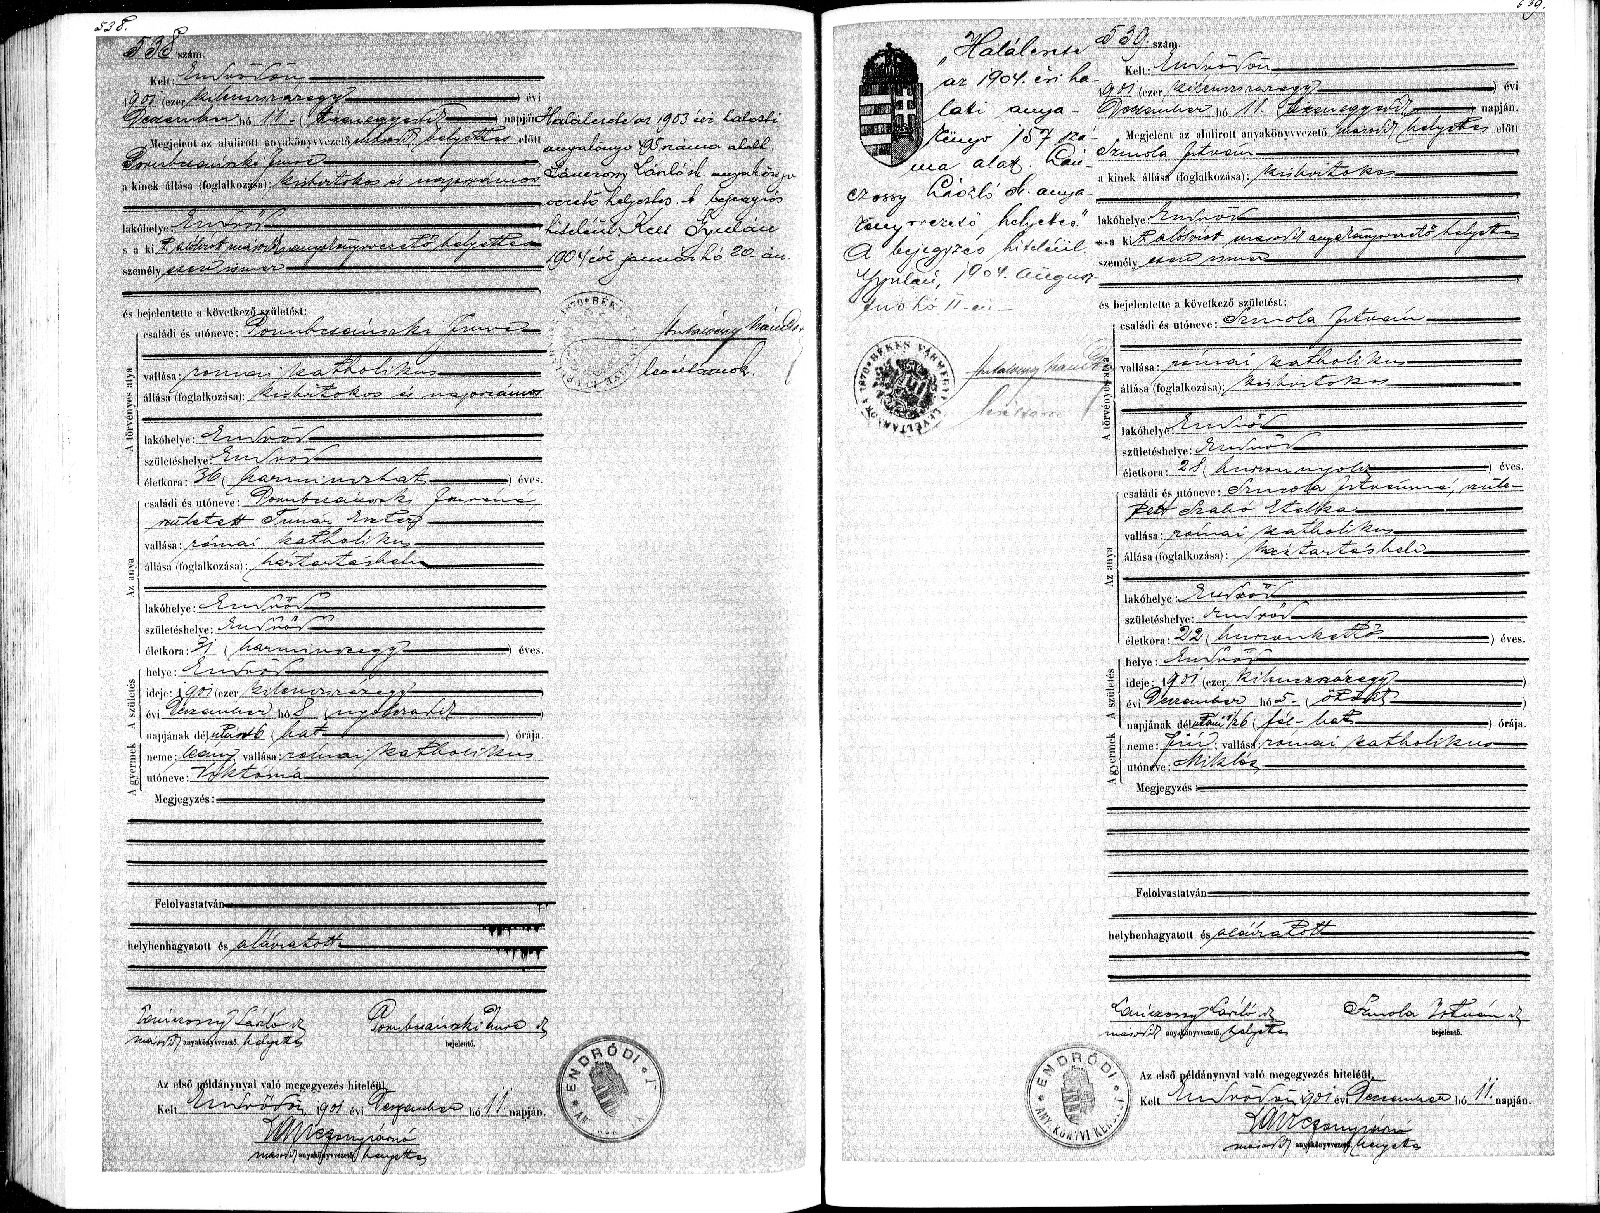 538.
538 szám.
Kelt: Endrődön
1901 (ezer kilenczszázegy) évi
Deczember hó 11. (tizenegyedik) napján.
Megjelent az alulirott anyakönyvvezető másod helyettes előtt
Imre
a kinek állása (foglalkozása): kisbirtokos és napszámos
lakóhelye: Endrőd
s a ki t alólirt másod anyakönyvvezető helyettes
személyesen ismer
és bejelentette a következő születést:
A törvényes atya
családi és utóneve: Imre
vallása: római katholikus
állása (foglalkozása): kisbirtokos és napszámos
lakóhelye: Endrőd
születéshelye: Endrőd
életkora: 36 (harminczhat) éves.
Az anya
családi és utóneve: Imréné
született Eszter
vallása: római katholikus
állása (foglalkozása): háztartásbeli
lakóhelye: Endrőd
születéshelye: Endrőd
életkora: 31 (harminczegy) éves.
A születés
helye: Endrőd
ideje: 1901 (ezer kilenczszázegy)
évi Deczember hó 8 (nyolczadik)
napjának délután 6 (hat) órája.
A gyermek
neme: leány vallása: római katholikus
utóneve: Viktória
Megjegyzés:
Felolvastatván
helybenhagyatott és aláíratott
Lánczossy László
másod anyakönyvvezető helyettes
Imre
bejelentő.
Az első példánynyal való megegyezés hiteléül.
Kelt Endrődön, 1901 évi Deczember hó 11 napján.
másod anyakönyvvezető helyettes
ENDRŐDI
Halálesete az 1903 évi halotti
anyakönyv száma alatt.
Lánczossy László anyakönyv-
vezető helyettes. A bejegyzés
hiteléül Kelt Gyulán
1904 évi január hó 20. án.
levéltárnok
539.
539. szám.
Kelt: Endrődön
1901 (ezer kilenczszázegy) évi
Deczember hó 11. (tizenegyedik) napján.
Megjelent az alulirott anyakönyvvezető másod helyettes előtt
Szmola István
a kinek állása (foglalkozása): kisbirtokos
lakóhelye: Endrőd
s a ki t alólirt másod anyakönyvvezető helyettes
személyesen ismer
és bejelentette a következő születést:
A törvényes atya
családi és utóneve: Szmola István
vallása: római katholikus
állása (foglalkozása): kisbirtokos
lakóhelye: Endrőd
születéshelye: Endrőd
életkora: 28 (huszonnyolcz) éves.
Az anya
családi és utóneve: Szmola Istvánné, szüle-
tett Szabó Etelka
vallása: római katholikus
állása (foglalkozása): háztartásbeli
lakóhelye: Endrőd
születéshelye: Endrőd
életkora: 22 (huszonkettő) éves.
A születés
helye: Endrőd
ideje: 1901 (ezer kilenczszázegy)
évi Deczember hó 5. (ötödik)
napjának délután 1/2 6 (fél-hat) órája.
A gyermek
neme: fiú; vallása: római katholikus
utóneve: Miklós
Megjegyzés:
Felolvastatván
helybenhagyatott és aláíratott
Lánczossy László
másod anyakönyvvezető helyettes
Szmola István
bejelentő.
Az első példánynyal való megegyezés hiteléül.
Kelt Endrődön, 1901 évi Deczember hó 11. napján.
másod anyakönyvvezető helyettes
ENDRŐDI
"Halálesete
az 1904. évi ha-
lotti anya-
könyv 157 szá-
ma alatt. Lán-
czossy László anya-
könyvvezető helyettes"
A bejegyzés hiteléül
Gyulán, 1904. augusz-
tus hó 11-én
1870 BÉKÉS VÁRMEGYE LEVÉLTÁRNOK